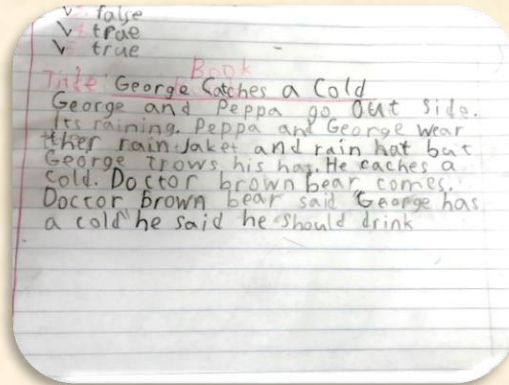 false
true
true
Book
Title: George Catches a Cold
George and Peppa go Out Side.
Its raining. Peppa and George wear
ther rain Jaket and rain hat but
George trows his hat. He caches a
cold. Doctor brown bear comes.
Doctor Brown bear said "George has
a cold" he said he should drink